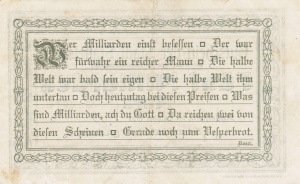 Wer Milliarden einst besessen ◻ Der war
fürwahr ein reicher Mann ◻ Die halbe
Welt war bald sein eigen ◻ Die halbe Welt ihm
untertan ◻ Doch heutzutag bei diesen Preisen ◻ Was
sind Milliarden, ach du Gott ◻ Da reichen zwei von
diesen Scheinen ◻ Gerade noch zum Vesperbrot.